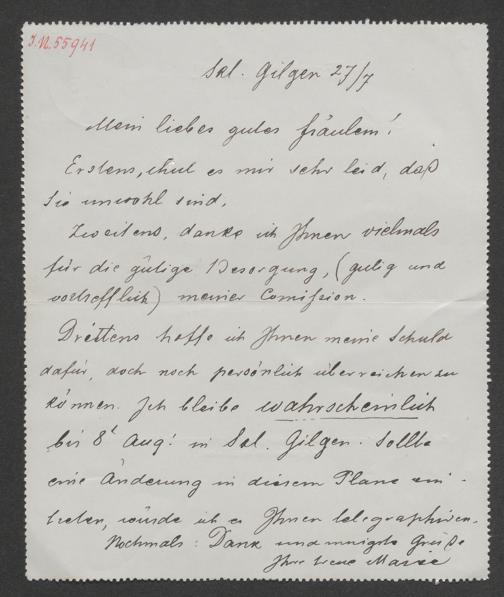 I.N. 55941
Skt. Gilgen 27/7
Mein liebes gutes Fräulein!
Erstens, thut es mir sehr leid, daß
Sie unwohl sind.
Zweitens, danke ich Ihnen vielmals
für die gütige Besorgung, (gütig und
vortrefflich) meiner Comission.
Drittens hoffe ich Ihnen meine Schuld
dafür, doch noch persönlich überreichen zu
können. Ich bleibe wahrscheinlich
bis 8t Aug: in Skt. Gilgen. Sollte
eine Änderung in diesem Plane ein-
treten, würde ich es Ihnen telegraphiren.
Nochmals: Dank und innigste Grüße
Ihre treue Marie